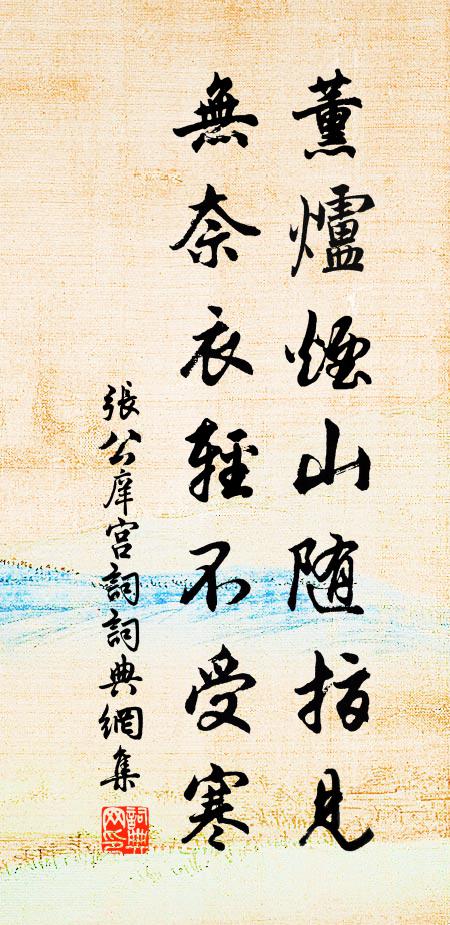 薰爐煙山随指見
無奈衣輕不受寒
張公庠宮詞詞典網集
詞典网印